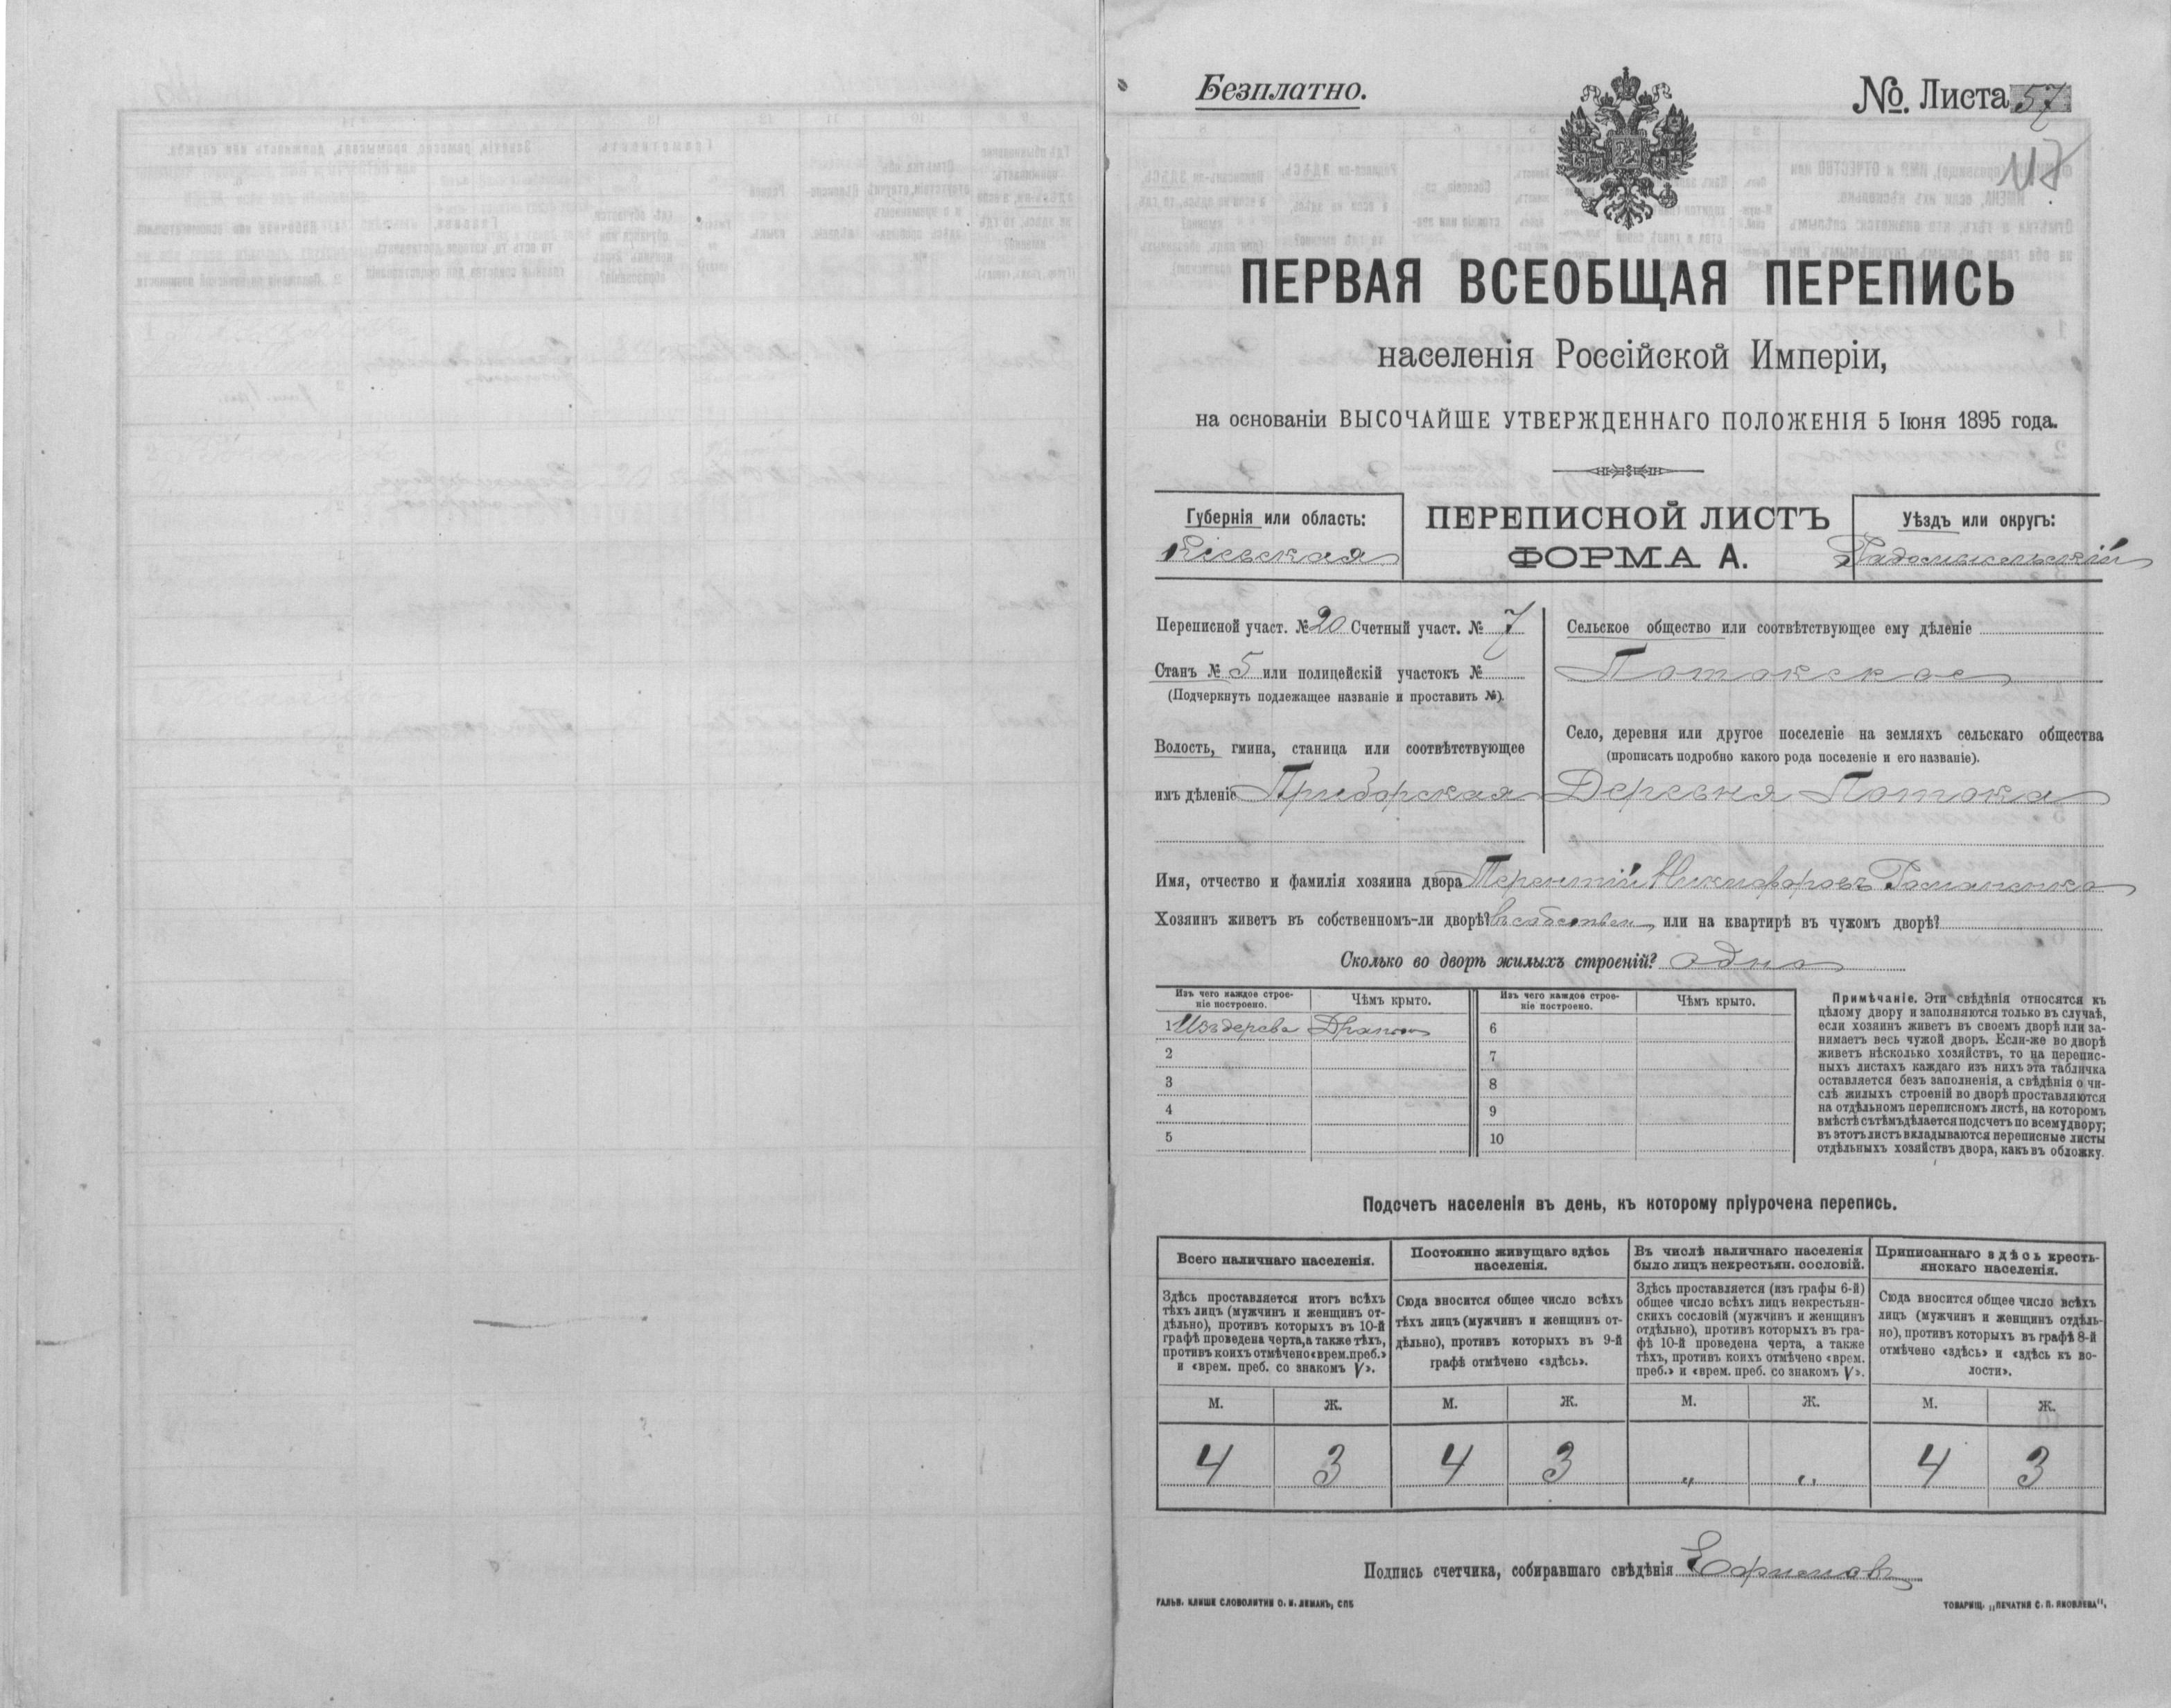 Безплатно.
№. Листа 57
117
ПЕРВАЯ ВСЕОБЩАЯ ПЕРЕПИСЬ
населенія Россійской Имперіи,
на основаніи ВЫСОЧАЙШЕ УТВЕРЖДЕННАГО ПОЛОЖЕНІЯ 5 Іюня 1895 года.
Губернія или область:
Кіевская
ПЕРЕПИСНОЙ ЛИСТЪ
ФОРМА А.
Уѣздъ или округъ:
Радомысльскій
Переписной участ. № 20 Счетный участ. № 7
Станъ № 5 или полицейскій участокъ №
(Подчеркнуть подлежащее названіе и проставить №).
Волость, гмина, станица или соотвѣтствующее
имъ дѣленіе Приборская
Сельское общество или соотвѣтствующее ему дѣленіе
Потокское
Село, деревня или другое поселеніе на земляхъ сельскаго общества
(прописать подробно какого рода поселеніе и его названіе).
Деревня Потока
Имя, отчество и фамилія хозяина двора Терентій Никифоровъ Романенко
Хозяинъ живетъ въ собственномъ-ли дворѣ? въ собствен или на квартирѣ въ чужомъ дворѣ?
Сколько во дворѣ жилыхъ строеній? одно
Изъ чего каждое строе-
ніе построено.
Чѣмъ крыто.
Изъ чего каждое строе-
ніе построено.
Чѣмъ крыто.
1 Изъ дерева Дранью
2
3
4
5
6
7
8
9
10
Примѣчаніе. Эти свѣдѣнія относятся къ
цѣлому двору и заполняются только въ случаѣ,
если хозяинъ живетъ въ своемъ дворѣ или за-
нимаетъ весь чужой дворъ. Если-же во дворѣ
живетъ нѣсколько хозяйствъ, то на перепис-
ныхъ листахъ каждаго изъ нихъ эта табличка
оставляется безъ заполненія, а свѣдѣнія о чи-
слѣ жилыхъ строеній во дворѣ проставляются
на отдѣльномъ переписномъ листѣ, на которомъ
вмѣстѣ съ тѣмъ дѣлается подсчетъ по всему двору;
въ этотъ листъ вкладываются переписные листы
отдѣльныхъ хозяйствъ двора, какъ въ обложку.
Подсчетъ населенія въ день, къ которому пріурочена перепись.
Всего наличнаго населенія.
Здѣсь проставляется итогъ всѣхъ
тѣхъ лицъ (мужчинъ и женщинъ от-
дѣльно), противъ которыхъ въ 10-й
графѣ проведена черта, а также тѣхъ,
противъ коихъ отмѣчено «врем. преб.»
и «врем. преб. со знакомъ V».
Постоянно живущаго здѣсь
населенія.
Сюда вносится общее число всѣхъ
тѣхъ лицъ (мужчинъ и женщинъ от-
дѣльно), противъ которыхъ въ 9-й
графѣ отмѣчено «здѣсь».
Въ числѣ наличнаго населенія
было лицъ некрестьян. сословій.
Здѣсь проставляется (изъ графы 6-й)
общее число всѣхъ лицъ некрестьян-
скихъ сословій (мужчинъ и женщинъ
отдѣльно), противъ которыхъ въ гра-
фѣ 10-й проведена черта, а также
тѣхъ, противъ коихъ отмѣчено «врем.
преб.» и «врем. преб. со знакомъ V».
Приписаннаго здѣсь кресть-
янскаго населенія.
Сюда вносится общее число всѣхъ
лицъ (мужчинъ и женщинъ отдѣль-
но), противъ которыхъ въ графѣ 8-й
отмѣчено «здѣсь» и «здѣсь къ во-
лости».
М. Ж. М. Ж. М. Ж. М. Ж.
4 3 4 3 „ „ 4 3
Подпись счетчика, собиравшаго свѣдѣнія Ефимовъ
ГАЛЬВ. КЛИШЕ СЛОВОЛИТНИ О. И. ЛЕМАНЪ, СПБ
ТОВАРИЩ. „ПЕЧАТНЯ С. П. ЯКОВЛЕВА".